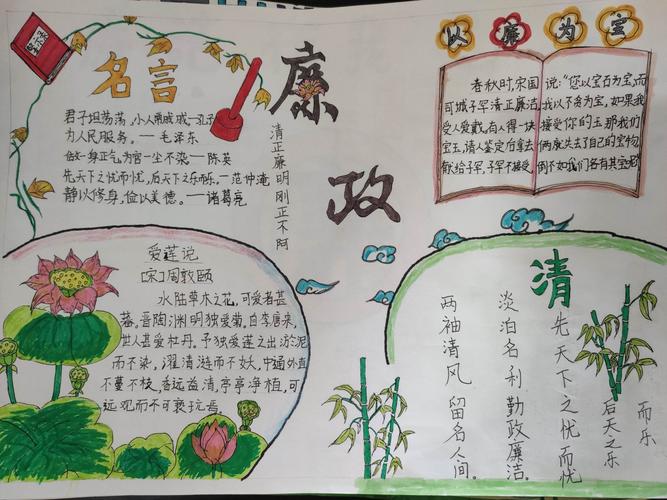 名言
君子坦荡荡，小人常戚戚—孔子
为人民服务。——毛泽东
做一身正气，为官一尘不染—陈英
先天下之忧而忧，后天下之乐而乐。—范仲淹
静以修身，俭以美德。——诸葛亮
廉政
清正廉明刚正不阿
以廉为宝
春秋时，宋国
司城子罕清正廉洁，
受人爱戴，有人得一块
宝玉，请人鉴定后拿去
献给子罕，子罕不接受，
说：“您以宝石为宝，而
我以不贪为宝，如果我
接受你的玉，那我们
俩就失去了自己的宝物，
倒不如我们各有其宝呢。
爱莲说
[宋]周敦颐
水陆草木之花，可爱者甚
蕃。晋陶渊明独爱菊，自李唐来，
世人甚爱牡丹。予独爱莲之出淤泥
而不染，濯清涟而不妖，中通外直
不蔓不枝，香远益清，亭亭净植，可
远观而不可亵玩焉。
清
先天下之忧而忧
后天之乐
而乐
淡泊名利勤政廉洁。
两袖清风留名人间。